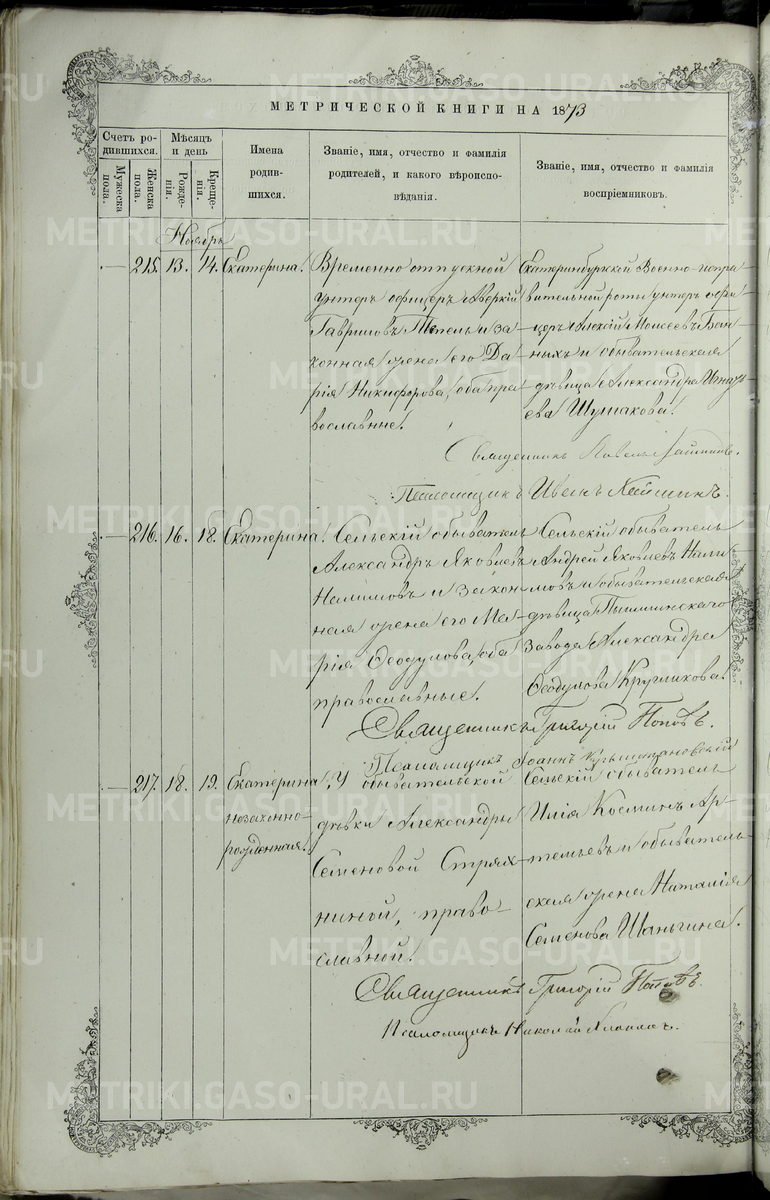 МЕТРИЧЕСКОЙ КНИГИ НА 1873
Счетъ ро-
дившихся.
Мужеска
пола.
Женска
пола.
Мѣсяцъ
и день
Рожде-
нія.
Креще-
нія.
Имена
родив-
шихся.
Званіе, имя, отчество и фамилія
родителей, и какого вѣроиспо-
вѣданія.
Званіе, имя, отчество и фамилія
воспріемниковъ.
Ноябрь
— 215. 13. 14. Екатерина.
Временно отпускной
унтеръ офицеръ Аверкій
Гавриловъ и за
конная жена его Да
рія Никифорова, оба пра
вославные.
Екатеринбургской Военно-испра
вительной роты унтеръ офи
церъ Алексій Моисеевъ Бан
ныхъ и обывательская
дѣвица Александра Игнать
ева Шушакова.
Священникъ
Псаломщикъ
— 216. 16. 18. Екатерина.
Сельскій обыватель
Александръ Яковлевъ
Налимовъ и закон
ная жена его Ма-
рія Ѳеодулова, оба
православные.
Сельскій обыватель
Андрей Яковлевъ Нали
мовъ и обывательская
дѣвица Пышминскаго
Завода Александра
Ѳеодулова Кругликова.
Священникъ Григорій Поповъ.
Псаломщикъ Іоаннъ
— 217. 18. 19. Екатерина,
незаконно-
рожденная.
У обывательской
дѣвки Александры
Семеновой Стрях-
ниной, право-
славной.
Сельскій обыватель
Илія Косминъ Ар-
темьевъ и обыватель-
ская жена Наталія
Семенова Шаньгина.
Священникъ Григорій Поповъ.
Псаломщикъ Николай
METRIKI.GASO-URAL.RU